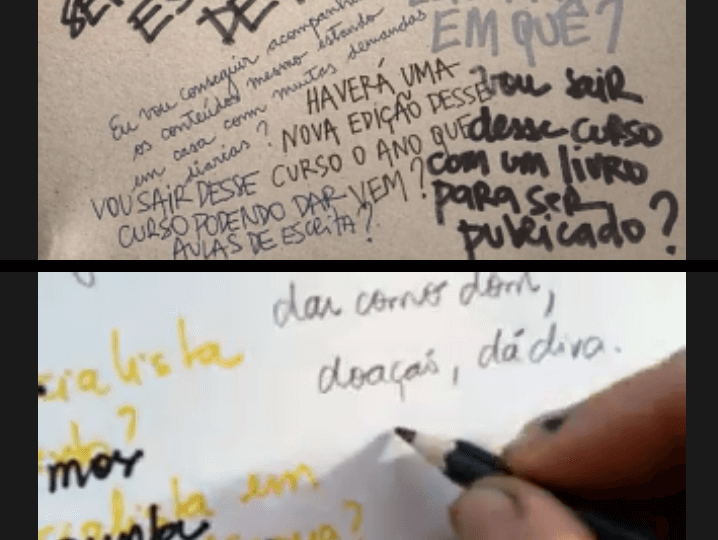 DE
EM QUÊ?
Eu vou conseguir acompanhar
os conteúdos mesmo estando
em casa com muitas demandas
diárias?
HAVERÁ UMA
NOVA EDIÇÃO DESSE
CURSO O ANO QUE
VEM?
VOU SAIR DESSE
CURSO PODENDO DAR
AULAS DE ESCRITA?
vou sair
desse curso
com um livro
para ser
publicado?
dar como dom,
doação, dádiva.
cialista
mos
cialista em